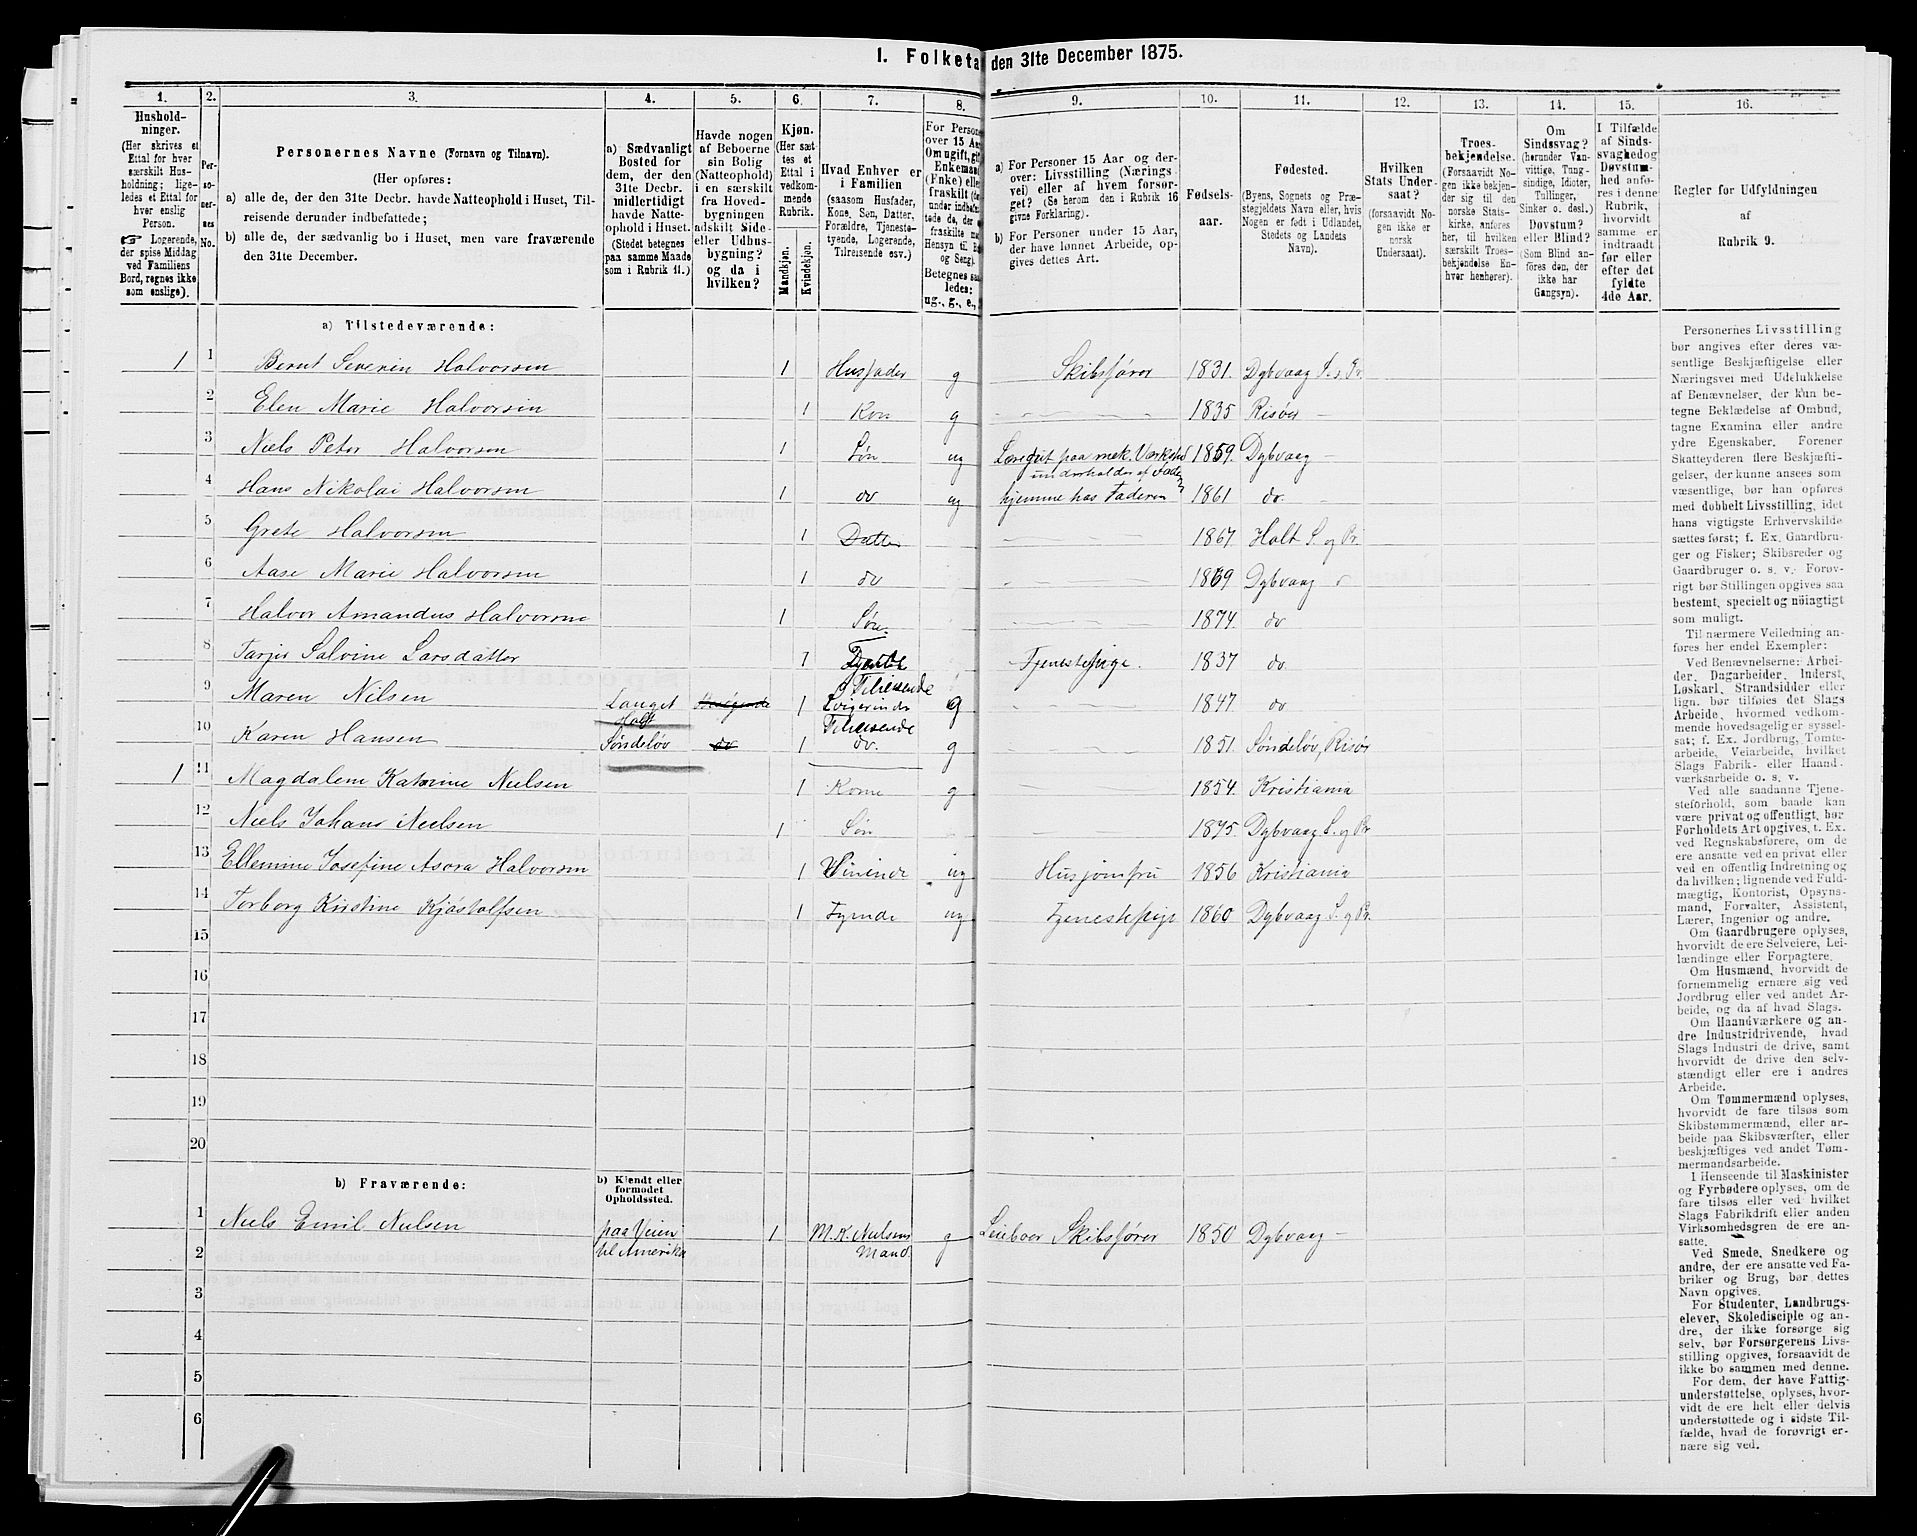 I. Folketæ den 31te December 1875.
1. 2. 3. 4. 5. 6. 7. 8. 9. 10. 11. 12. 13. 14. 15. 16.
Hushold-
ninger.
(Her skrives et
Ettal for hver
særskilt Hus-
holdning; lige-
ledes et Ettal for
hver enslig
Person.
☞ Logerende,
der spise Middag
ved Familiens
Bord, regnes ikke
som enslige).
Per-
so-
ner-
nes
No.
Personernes Navne (Fornavn og Tilnavn).
(Her opføres:
a) alle de, der den 31te Decbr. havde Natteophold i Huset, Til-
reisende derunder indbefattede;
b) alle de, der sædvanlig bo i Huset, men vare fraværende
den 31te December.
a) Sædvanligt
Bosted for
dem, der den
31te Decbr.
midlertidigt
havde Natte-
ophold i Huset.
(Stedet betegnes
paa samme Maade
som i Rubrik 11.)
Havde nogen
af Beboerne
sin Bolig
(Natteophold)
i en særskilt
fra Hoved-
bygningen
adskilt Side-
eller Udhus-
bygning?
og da i
hvilken?
Kjøn.
(Her sæt-
tes et
Ettal i
vedkom-
mende
Rubrik.
Mandkjøn.
Kvindekjøn.
Hvad Enhver er
i Familien
(saasom Husfader,
Kone, Søn, Datter,
Forældre, Tjeneste-
tyende, Logerende,
Tilreisende osv.)
For Persone
over 15 Aar
Om ugift, gif
Enkemand
(Enke) elle
fraskilt
under
tede de, der
fraskilte
Hensyn til B
og Seng).
Betegnes saa
ledes:
ug., g., e.,
a) For Personer 15 Aar og der-
over: Livsstilling (Nærings
vei) eller af hvem forsør-
get? (Se herom den i Rubrik 16
givne Forklaring).
b) For Personer under 15 Aar,
der have lønnet Arbeide, op-
gives dettes Art.
Fødsels-
aar.
Fødested.
(Byens, Sognets og Præ-
stegjeldets Navn eller, hvis
Nogen er født i Udlandet,
Stedets og Landets
Navn).
Hvilken
Stats Under-
saat?
(forsaavidt No-
gen ikke er
norsk
Undersaat).
Troes-
bekjendelse.
(Forsaavidt No-
gen ikke bekjen-
der sig til den
norske Stats-
kirke, anføres
her, til hvilken
særskilt Troes-
bekjendelse En-
hver henhører).
Om
Sindssvag?
(herunder Van-
vittige, Idioter,
Tullinger,
Sinker o. desl.)
Døvstum?
eller Blind?
(Som Blind an-
føres den, der
ikke har
Gangsyn).
I Tilfælde
af Sinds-
svaghed og
Døvstum-
hed anføres
i denne
Rubrik,
hvorvidt
samme er
indtraadt
før eller
efter det
fyldte
4de Aar.
Regler for Udfyldningen
af
Rubrik 9.
a) Tilstedeværende:
1 1 Bernt Severin Halvorsen 1 Husfader g Skibsfører 1831. Dybvaag S. & Pr.
2 Elen Marie Halvorsen 1 Kon g 1835 Risør
3 Niels Peter Halvorsen 1 Søn ug Læregut paa mek. Værksted 1859. Dybvaag
underholdes af Fader
4 Hans Nikolai Halvorsen 1 do ug hjemme hos Faderen 1861 do.
5 Grete Halvorsen 1 Datter 1867 Holt S. og Pr.
6 Aase Marie Halvorsen 1 do 1869 Dybvaag
7 Halvor Amandus Halvorsen 1 Søn. 1874. do
8 Tarjer Salvine Larsdatter 1 Tjenstepige. 1837 do.
9 Maren Nilsen Langet Holt 1 Tilreisende Svigerinde g 1847. do
10 Karen Hansen Søndeløv do 1 Tilreisende do. g 1851. Søndeløv, Risør
1 11 Magdalene Katrine Nielsen 1 Kone g 1854. Kristiania
12 Niels Johans Nielsen 1 Søn 1875. Dybvaag S. og Pr.
13 Ellemine Josefine Asora Halvorsen 1 ug Husjomfru 1856 Kristiania
14 Torborg Kirstine Kjøstolfsen 1 Tyende ug Tjenestepige 1860 Dybvaag S. og Pr.
15
16
17
18
19
20
b) Fraværende:
b) Kjendt eller
formodet
Opholdssted.
1 Niels Emil Nielsen paa Veien 1 M. K. Nielsens g Skibsfører 1850 Dybvaag
2 til Amerika Mand.
3
4
5
6
Personernes Livsstilling
bør angives efter deres væ-
sentlige Beskjæftigelse eller
Næringsvei med Udelukkelse
af Benævnelser, der kun be-
tegne Beklædelse af Ombud,
tagne Examina eller andre
ydre Egenskaber. Forener
Skatteyderen flere Beskjæfti-
gelser, der kunne ansees som
væsentlige, bør han opføres
med dobbelt Livsstilling, idet
hans vigtigste Erhvervskilde
sættes først; f. Ex. Gaardbru-
ger og Fisker; Skibsreder og
Gaardbruger o. s. v. Forøv-
rigt bør Stillingen opgives saa
bestemt, specielt og nøiagtigt
som muligt.
Til nærmere Veiledning an-
føres her endel Exempler:
Ved Benævnelserne: Arbei-
der, Dagarbeider, Inderst,
Løskarl, Strandsidder eller
lign. bør tilføies det Slags
Arbeide, hvormed vedkom-
mende hovedsagelig er syssel-
sat; f. Ex. Jordbrug, Tomte-
arbeide, Veiarbeide, hvilket
Slags Fabrik- eller Haand-
værksarbeide o. s. v.
Ved alle saadanne Tjene-
steforhold, som baade kan
være privat og offentligt, bør
Forholdets Art opgives, t. Ex.
ved Regnskabsførere, om de
ere ansatte ved en privat eller
ved en offentlig Indretning og
da hvilken; lignende ved Fuld-
mægtig, Kontorist, Opsyns-
mand, Forvalter, Assistent,
Lærer, Ingeniør og andre.
Om Gaardbrugere oplyses,
hvorvidt de ere Selveiere, Lei-
lændinge eller Forpagtere.
Om Husmænd, hvorvidt de
fornemmelig ernære sig ved
Jordbrug eller ved andet Ar-
beide, og da af hvad Slags.
Om Haandværkere og an-
dre Industridrivende, hvad
Slags Industri de drive, samt
hvorvidt de drive den selv-
stændigt eller ere i andres
Arbeide.
Om Tømmermænd oplyses,
hvorvidt de fare tilsøs som
Skibstømmermænd, eller ar-
beide paa Skibsværfter, eller
beskjæftiges ved andet Tøm-
mermandsarbeide.
I Henseende til Maskinister
og Fyrbødere oplyses, om de
fare tilsøs eller ved hvilket
Slags Fabrikdrift eller anden
Virksomhedsgren de ere an-
satte.
Ved Smede, Snedkere og
andre, der ere ansatte ved Fa-
briker og Brug, bør dettes
Navn opgives.
For Studenter, Landbrugs-
elever, Skoledisciple og an-
dre, der ikke forsørge sig
selv, bør Forsørgerens Livs-
stilling opgives, forsaavidt de
ikke bo sammen med denne.
For dem, der have Fattig-
understøttelse, oplyses, hvor-
vidt de ere helt eller delvis
understøttede og i sidste Til-
fælde, hvad de forøvrigt er-
nære sig ved.